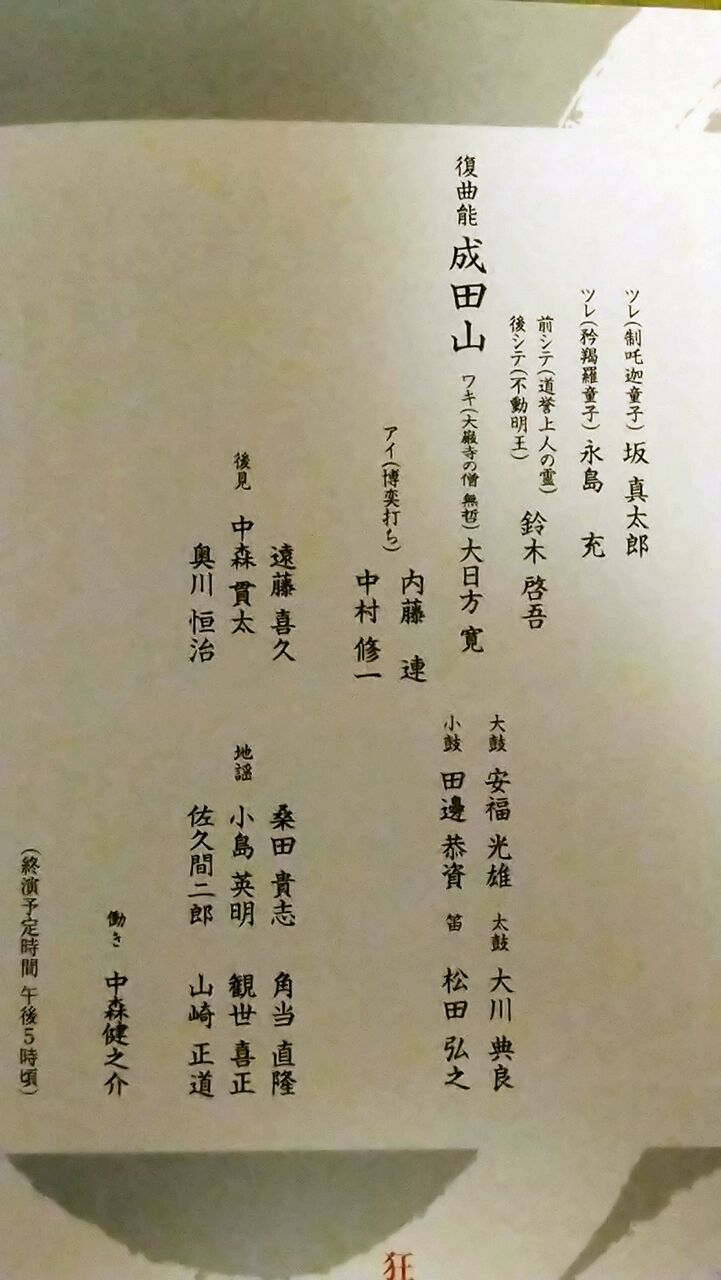 ツレ(制吒迦童子) 坂 真太郎
ツレ(矜羯羅童子) 永島 充
前シテ(道誉上人の霊)
後シテ(不動明王)
鈴木 啓吾
復曲能 成田山 ワキ(大巌寺の僧 無哲) 大日方 寛
アイ(博奕打ち)
内藤 連
中村 修一
大鼓 安福 光雄
小鼓 田邊 恭資
太鼓 大川 典良
笛 松田 弘之
後見
遠藤 喜久
中森 貫太
奥川 恒治
地謡
桑田 貴志 角当 直隆
小島 英明 観世 喜正
佐久間二郎 山崎 正道
働き 中森健之介
(終演予定時間 午後5時頃)
狂